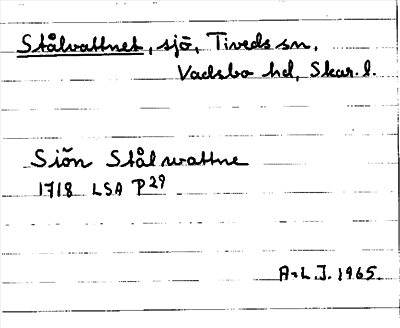 Stålvattnet, sjö, Tiveds sn,
Vadsbo hd, Skar. l.
Siön Stål wattne
1718 LSA P29
A-L.J. 1965.